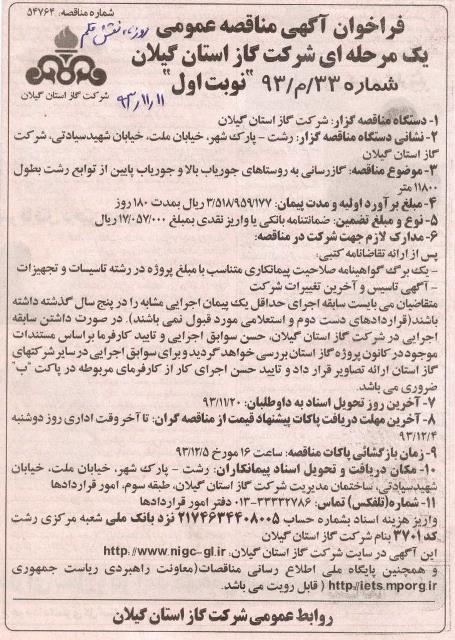 شماره مناقصه: ۵۴۷۶۴
فراخوان آگهی مناقصه عمومی
یک مرحله ای شرکت گاز استان گیلان
شماره ۳۳/م/۹۳ "نوبت اول"
روزنامه نقش قلم
۹۳,۱۱,۱۱
شرکت گاز استان گیلان
۱- دستگاه مناقصه گزار: شرکت گاز استان گیلان
۲- نشانی دستگاه مناقصه گزار: رشت - پارک شهر، خیابان ملت، خیابان شهیدسیادتی، شرکت
گاز استان گیلان
۳- موضوع مناقصه: گازرسانی به روستاهای جوریاب بالا و جوریاب پایین از توابع رشت بطول
۱۱۸۰۰ متر
۴- مبلغ برآورد اولیه و مدت پیمان: ۳/۵۱۸/۹۵۹/۱۷۷ ریال بمدت ۱۸۰ روز
۵- نوع و مبلغ تضمین: ضمانتنامه بانکی یا واریز نقدی بمبلغ ۱۷/۰۵۷/۰۰۰ ریال
۶- مدارک لازم جهت شرکت در مناقصه:
پس از ارائه تقاضانامه کتبی:
- یک برگ گواهینامه صلاحیت پیمانکاری متناسب با مبلغ پروژه در رشته تاسیسات و تجهیزات
- آگهی تاسیس و آخرین تغییرات شرکت
متقاضیان می بایست سابقه اجرای حداقل یک پیمان اجرایی مشابه را در پنج سال گذشته داشته
باشند(قراردادهای دست دوم و استعلامی مورد قبول نمی باشند). در صورت داشتن سابقه
اجرایی در شرکت گاز استان گیلان، حسن سوابق اجرایی و تایید کارفرما براساس مستندات
موجود در کانون پروژه گاز استان بررسی خواهد گردید و برای سوابق اجرایی در سایر شرکتهای
گاز استان ارائه تصاویر قرار داد و تایید حسن اجرای کار از کارفرمای مربوطه در پاکت "ب"
ضروری می باشد.
۷- آخرین روز تحویل اسناد به داوطلبان: ۹۳/۱۱/۲۰
۸- آخرین مهلت دریافت پاکات پیشنهاد قیمت از مناقصه گران: تا آخر وقت اداری روز دوشنبه
۹۳/۱۲/۴
۹- زمان بازگشائی پاکات مناقصه: ساعت ۱۶ مورخ ۹۳/۱۲/۵
۱۰- مکان دریافت و تحویل اسناد پیمانکاران: رشت - پارک شهر، خیابان ملت، خیابان
شهیدسیادتی، ساختمان مدیریت شرکت گاز استان گیلان، طبقه سوم، امور قراردادها
۱۱- شماره(تلفکس) تماس: ۳۳۳۳۲۷۸۶-۰۱۳ دفتر امور قراردادها
واریز هزینه اسناد بشماره حساب ۲۱۷۴۶۳۴۴۰۸۰۰۵ نزد بانک ملی شعبه مرکزی رشت
کد ۳۷۰۱ بنام شرکت گاز استان گیلان
این آگهی در سایت شرکت گاز استان گیلان: http://www.nigc-gl.ir
و همچنین پایگاه ملی اطلاع رسانی مناقصات(معاونت راهبردی ریاست جمهوری
http://iets.mporg.ir ) قابل رویت می باشد.
روابط عمومی شرکت گاز استان گیلان